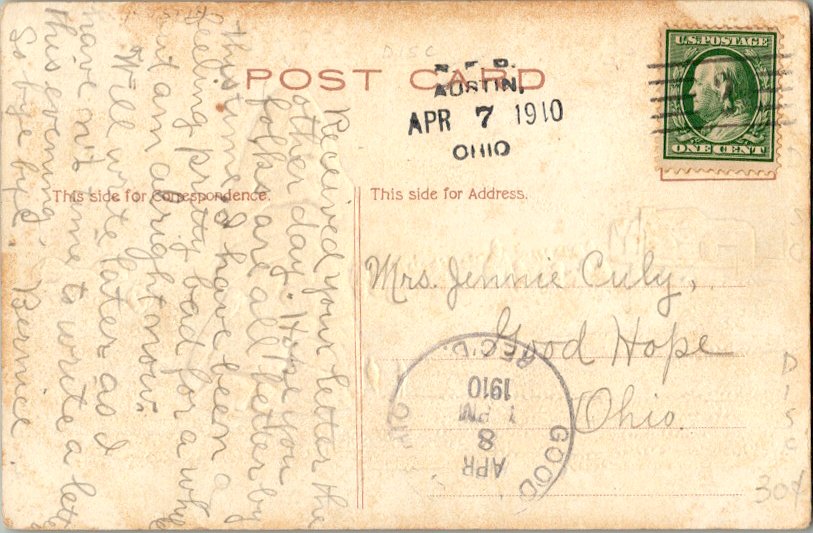 POST CARD
R.F.D.
AUSTIN,
APR 7 1910
OHIO
U.S. POSTAGE
ONE CENT
This side for Correspondence.
This side for Address.
Received your letter the
other day. Hope you
folks are all better by
this time. I have been
feeling pretty bad for a while
but am alright now.
Will write later as I
have n't time to write a letter
this evening.
So bye bye. Bernice.
Mrs. Jennie Culy,
Good Hope
Ohio.
GOOD
REC'D.
APR
8
1 PM
1910
DISC
30¢